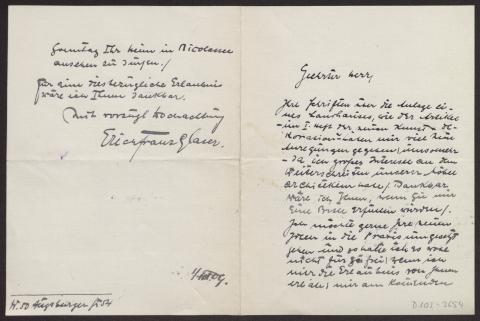 Geehrter Herr,
Ihre Schriften über die Anlage ei-
nes Landhauses, wie der Artikel
im I. Heft der neuen Kunst & De-
koration haben mir viel reine
Anregungen gegeben, umsomehr
da ich großes Interesse an dem
Weiterschreiten unserer Möbel
architektur habe. Dankbar
wäre ich Ihnen, wenn Sie mir
eine Bitte erfüllen würden.
Ich möchte gerne Ihre neuen
Ideen in die Praxis umgesetzt
sehen und es halte ich es wohl
nicht für zu früh, wenn ich
mir die Erlaubnis von Ihnen
erbäte, mir am kommenden
Sonntag Ihr Heim in Nicolassee
ansehen zu dürfen.
Für eine diesbezügliche Erlaubnis
wäre ich Ihnen dankbar.
Mit vorzügl Hochachtung
Erich Franz Glaser.
W. 50 Augsburger
D.102-2654